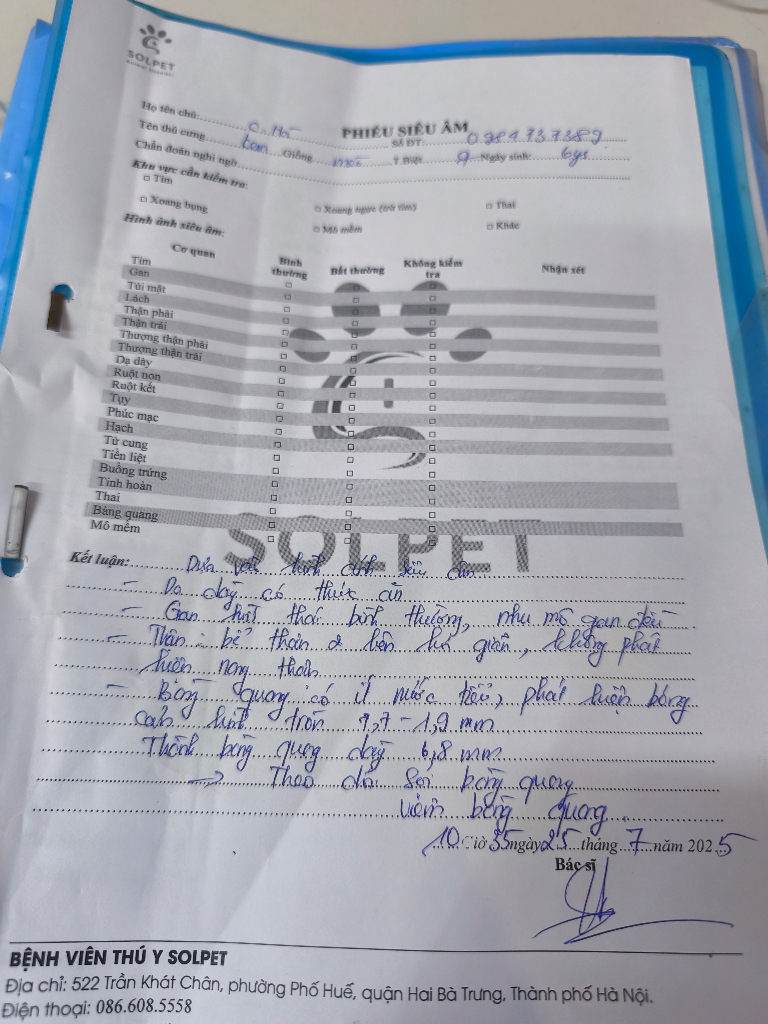 SOLPET
PHIẾU SIÊU ÂM
Họ tên chủ: C. Hà Số ĐT: 0981737389
Tên thú cưng Lam Giống T.Biệt ♀ Ngày sinh: 6ys
Chẩn đoán nghi ngờ
Khu vực cần kiểm tra:
□ Tim □ Xoang ngực (trừ tim) □ Thai
□ Xoang bụng □ Mô mềm □ Khác
Hình ảnh siêu âm:
Cơ quan Bình thường Bất thường Không kiểm tra Nhận xét
Tim □ □ □
Gan □ □ □
Túi mật □ □ □
Lách □ □ □
Thận phải □ □ □
Thận trái □ □ □
Thượng thận phải □ □ □
Thượng thận trái □ □ □
Dạ dày □ □ □
Ruột non □ □ □
Ruột kết □ □ □
Tụy □ □ □
Phúc mạc □ □ □
Hạch □ □ □
Tử cung □ □ □
Tiền liệt □ □ □
Buồng trứng □ □ □
Tinh hoàn □ □ □
Thai □ □ □
Bàng quang □ □ □
Mô mềm □ □ □
SOLPET
Kết luận: Dựa vào hình ảnh siêu âm
- Dạ dày có thức ăn
- Gan hình thái bình thường, nhu mô gan đều
- Thận: bể thận 2 bên hơi giãn, không phát
hiện nang thận
- Bàng quang có ít nước tiểu, phát hiện bóng
cản hình tròn 1,7-1,9 mm
Thành bàng quang dày 6,8 mm
→ Theo dõi Sỏi bàng quang
viêm bàng quang
10 Giờ 35 ngày 25 tháng 7 năm 2025
Bác sĩ
BỆNH VIỆN THÚ Y SOLPET
Địa chỉ: 522 Trần Khát Chân, phường Phố Huế, quận Hai Bà Trưng, Thành phố Hà Nội.
Điện thoại: 086.608.5558